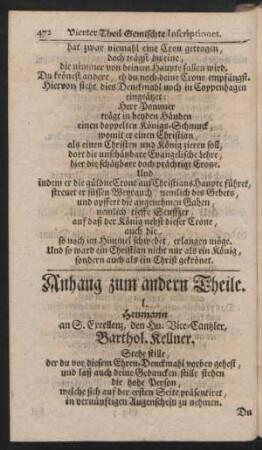 472 Vierter Theil Gemischte Inscriptiones.
hat zwar niemahl eine Cron getragen,
doch trägst du eine,
die nimmer von deinem Haupte fallen wird.
Du krönest andere, eh du noch deine Crone empfängst.
Hiervon steht dies Denckmahl noch in Coppenhagen
eingeätzet:
Herr Pommer
trägt in beyden Händen
einen doppelten Königs-Schmuck,
womit er einen Christian,
als einen Christen und König zieren soll,
dort die unschätzbare Evangelische Lehre,
hier die schätzbare doch prächtige Crone.
Und
indem er die güldne Crone auf Christians Haupte führet,
streuet er süssen Weyrauch, nemlich des Gebets,
und opffert die angenehmen Gaben,
nemlich tieffe Seuffzer,
auf daß der König nebst dieser Crone,
auch die,
so noch im Himmel schwebet, erlangen möge.
Und so ward ein Christian nicht nur als ein König,
sondern auch als ein Christ gekrönet.
Anhang zum andern Theile.
I.
Heumann
an S. Excellenz, den Hn. Vice-Cantzler,
Barthol. Kellner.
Stehe stille,
der du vor diesem Ehren-Denckmahl vorbey gehest,
und laß auch deine Gedancken stille stehen
die hohe Person,
welche sich auf der ersten Seite präsentiret,
in vernünftigen Augenschein zu nehmen.
Du